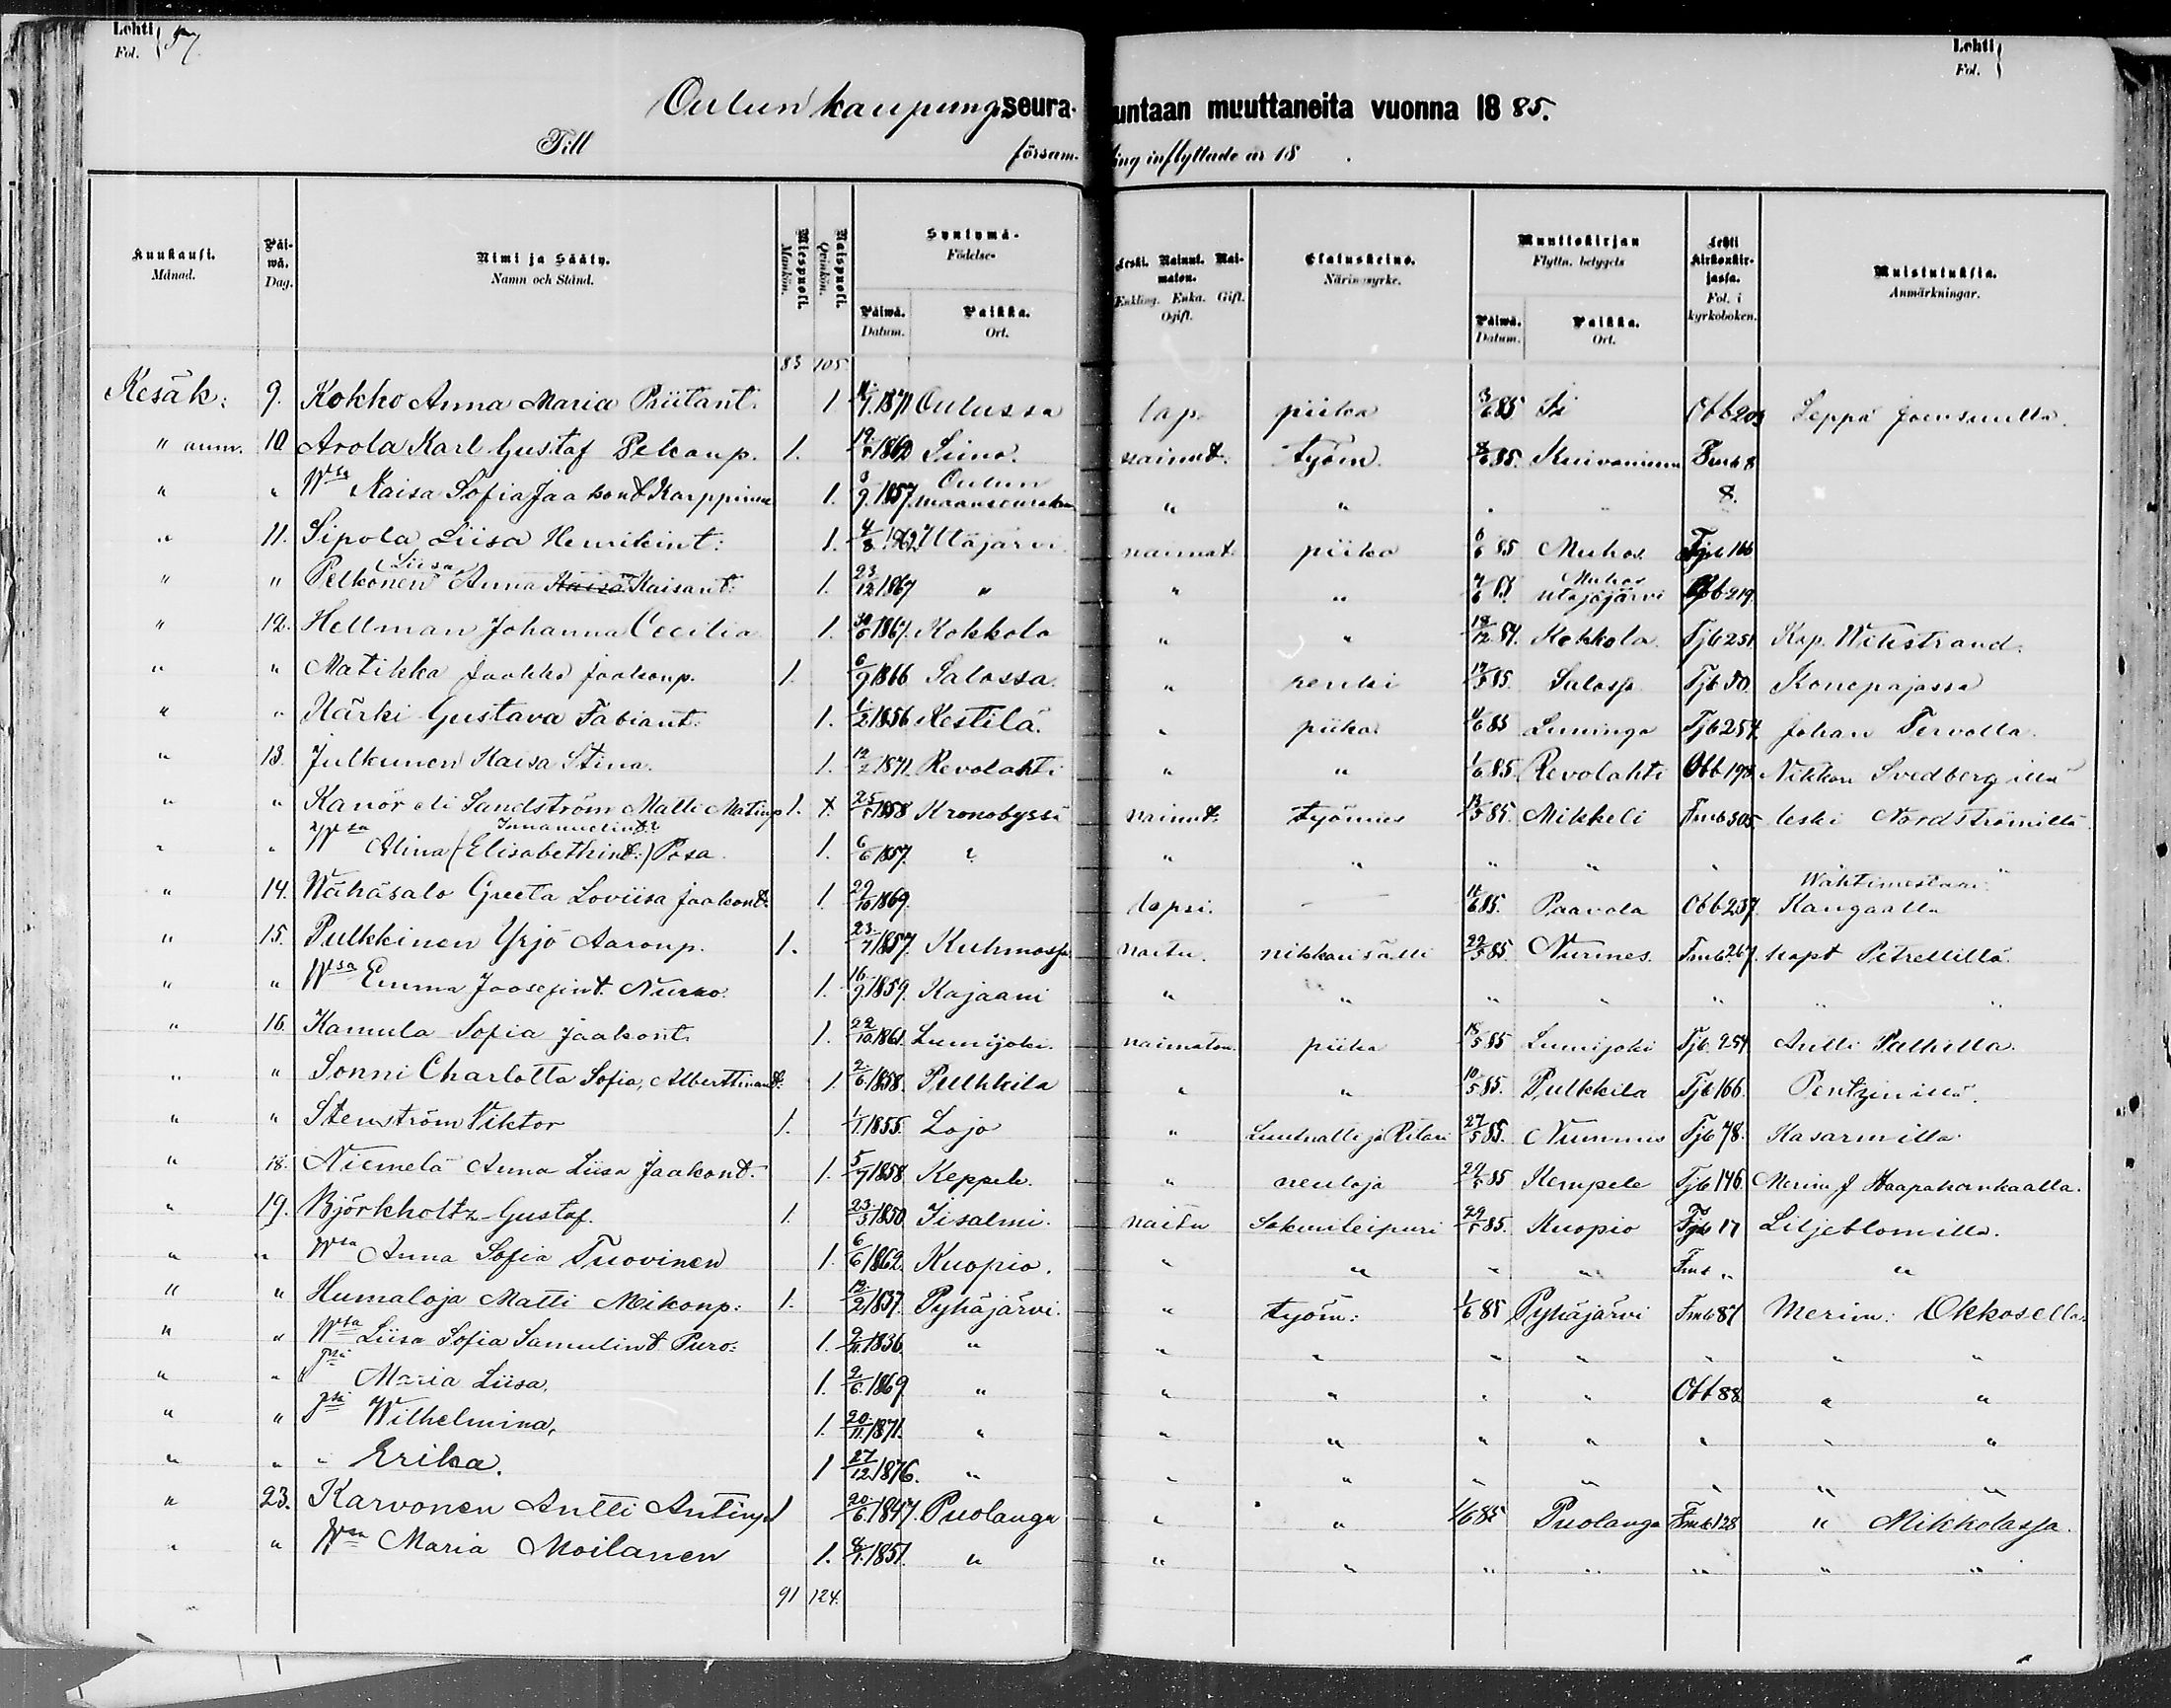 Lehti
Fol.
Lehti
Fol.
Oulun kaupung. seura- untaan muuttaneita vuonna 1885.
Till försam- ling inflyttade år 18 .
Kuukausi. Månad. Päiwä. Dag. Nimi ja Sääty. Namn och Stånd. Miespuoli. Mankön. Naispuoli. Qvinkön. Syntymä- Födelse- Päiwä. Datum. Paikka. Ort. Leski. Nainut. Naimaton. Enkling. Enka. Gift. Ogift. Elatuskeino. Näringsyrke. Muuttokirjan Flyttn. betygets Päiwä. Datum. Paikka. Ort. Lehti kirkonkirjassa. Fol. i kyrkoboken. Muistutuksia. Anmärkningar.
83 105
Kesäk: 9. Kokko Anna Maria Priitant. 1 1871 Oulussa lap. piika 3/6 85 Ii Obb 203 Leppä Joensuulla.
" 10 Arola Karl Gustaf Pekanp. 1. Simo. nainut. työm. 85. Kuivaniemi Fmb 8
" " Wsa Kaisa Sofia Jaakont Karppinen 1. 9. 1857. Oulun maanseurakun " " " " 8.
" 11. Sipola Liisa Henrikint: 1. 4/8 Utäjärvi naimat. piika 6/6 85 Muhos Tjb 166
" " Pelkonen (Liisa) Anna Kaisa Kaisant: 1. 23/12 1867 " " " Muhos Utajäjärvi Obb 219.
" 12. Hellman Johanna Cecilia 1. 1867. Kokkola " " 18/12 84. Kokkola. Tjb 251 Kap. Wikstrand.
" " Matikka Jaakko Jaakonp. 1. 6/9 1866 Salossa. " renki 85. Salossa Tjb 50. Konepajassa
" " Härki Gustava Fabiant. 1. 1/2 1856 Kestilä. " piika 85 Liminga Tjb 254. Johan Tervolla.
" 13. Julkunen Kaisa Stina. 1. 12/2 1871. Revolahti " " 1/6 85. Revolahti Obb 198. Nikkari Svedberg illä
" " Kanör eli Sandström Matti Matinp 1. 25 1858 Kronobyssä nainut. työmies 85. Mikkeli Fmb 305. leski Nordströmillä
" " Wsa Alina (Elisabethint:) Posa. 1. 6/6 1857. " " " " " " "
" 14. Wähäsalo Greeta Loviisa Jaakont. 1. 29/10 1869. lapsi. — 85. Paavola Obb 237. Wahtimestari Kangaalla
" 15. Pulkkinen Yrjö Aaronp. 1. 23/7 1857. Kuhmossa. naitu. nikkarisälli 22/5 85. Nurmes. Fmb. 267. kapt Petrellillä.
" " Wsa Emma Joosepint. Nurro. 1. 16/9 1859. Kajaani " " " " " " "
" 16. Kamula Sofia Jaakont. 1. 22/10 1861. Lumijoki. naimaton. piika 18/5 85 Lumijoki Tjb. 254 Antti Pulkilla.
" " Sonni Charlotta Sofia, Alberttinant. 1. 2/6 1858. Pulkkila " " 10/5 85. Pulkkila Tjb 166. Pentzinillä.
" " Stenström Viktor 1. 1/1 1855. Lojo " 27/5 85. Nummis Tjb 78. Kasarmilla.
" 18. Niemelä Anna Liisa Jaakont. 1. 5/7 1858. Keppele. " neuloja 85 Kempele Tjb 146. Merim J Haapakankaalla.
" 19. Björkholtz Gustaf. 1. 23/3 1850 Iisalmi. naitu Sokurileipuri 29 85. Kuopio Tjb 17 Liljeblomilla.
" " Wsa Anna Sofia Tuovinen 1. 6/6 1862. Kuopio. " " " " Fmb " "
" " Humaloja Matti Mikonp: 1. 12/2 1837. Pyhäjärvi. " työm: 1/6 85 Pyhäjärvi Fmb 87 Merim: Okkosella
" " Wsa Liisa Sofia Samulint Puro: 1. 1836. " " " " " " " "
" " Maria Liisa. 1. 2/6. 1869 " " " " " Obb 88. " "
" " Wilhelmina, 1. 20/11. 1871. " " " " " " " "
" " " Erika. 1 27/12 1876. " " " " " " " "
" 23. Karvonen Antti Antinp 1 20/6. 1847. Puolanga " " 1/6 85 Puolanga Fmb 128 " Mikkolassa.
" " Wsa Maria Moilanen 1. 1851. " " " " " " " "
91 124.